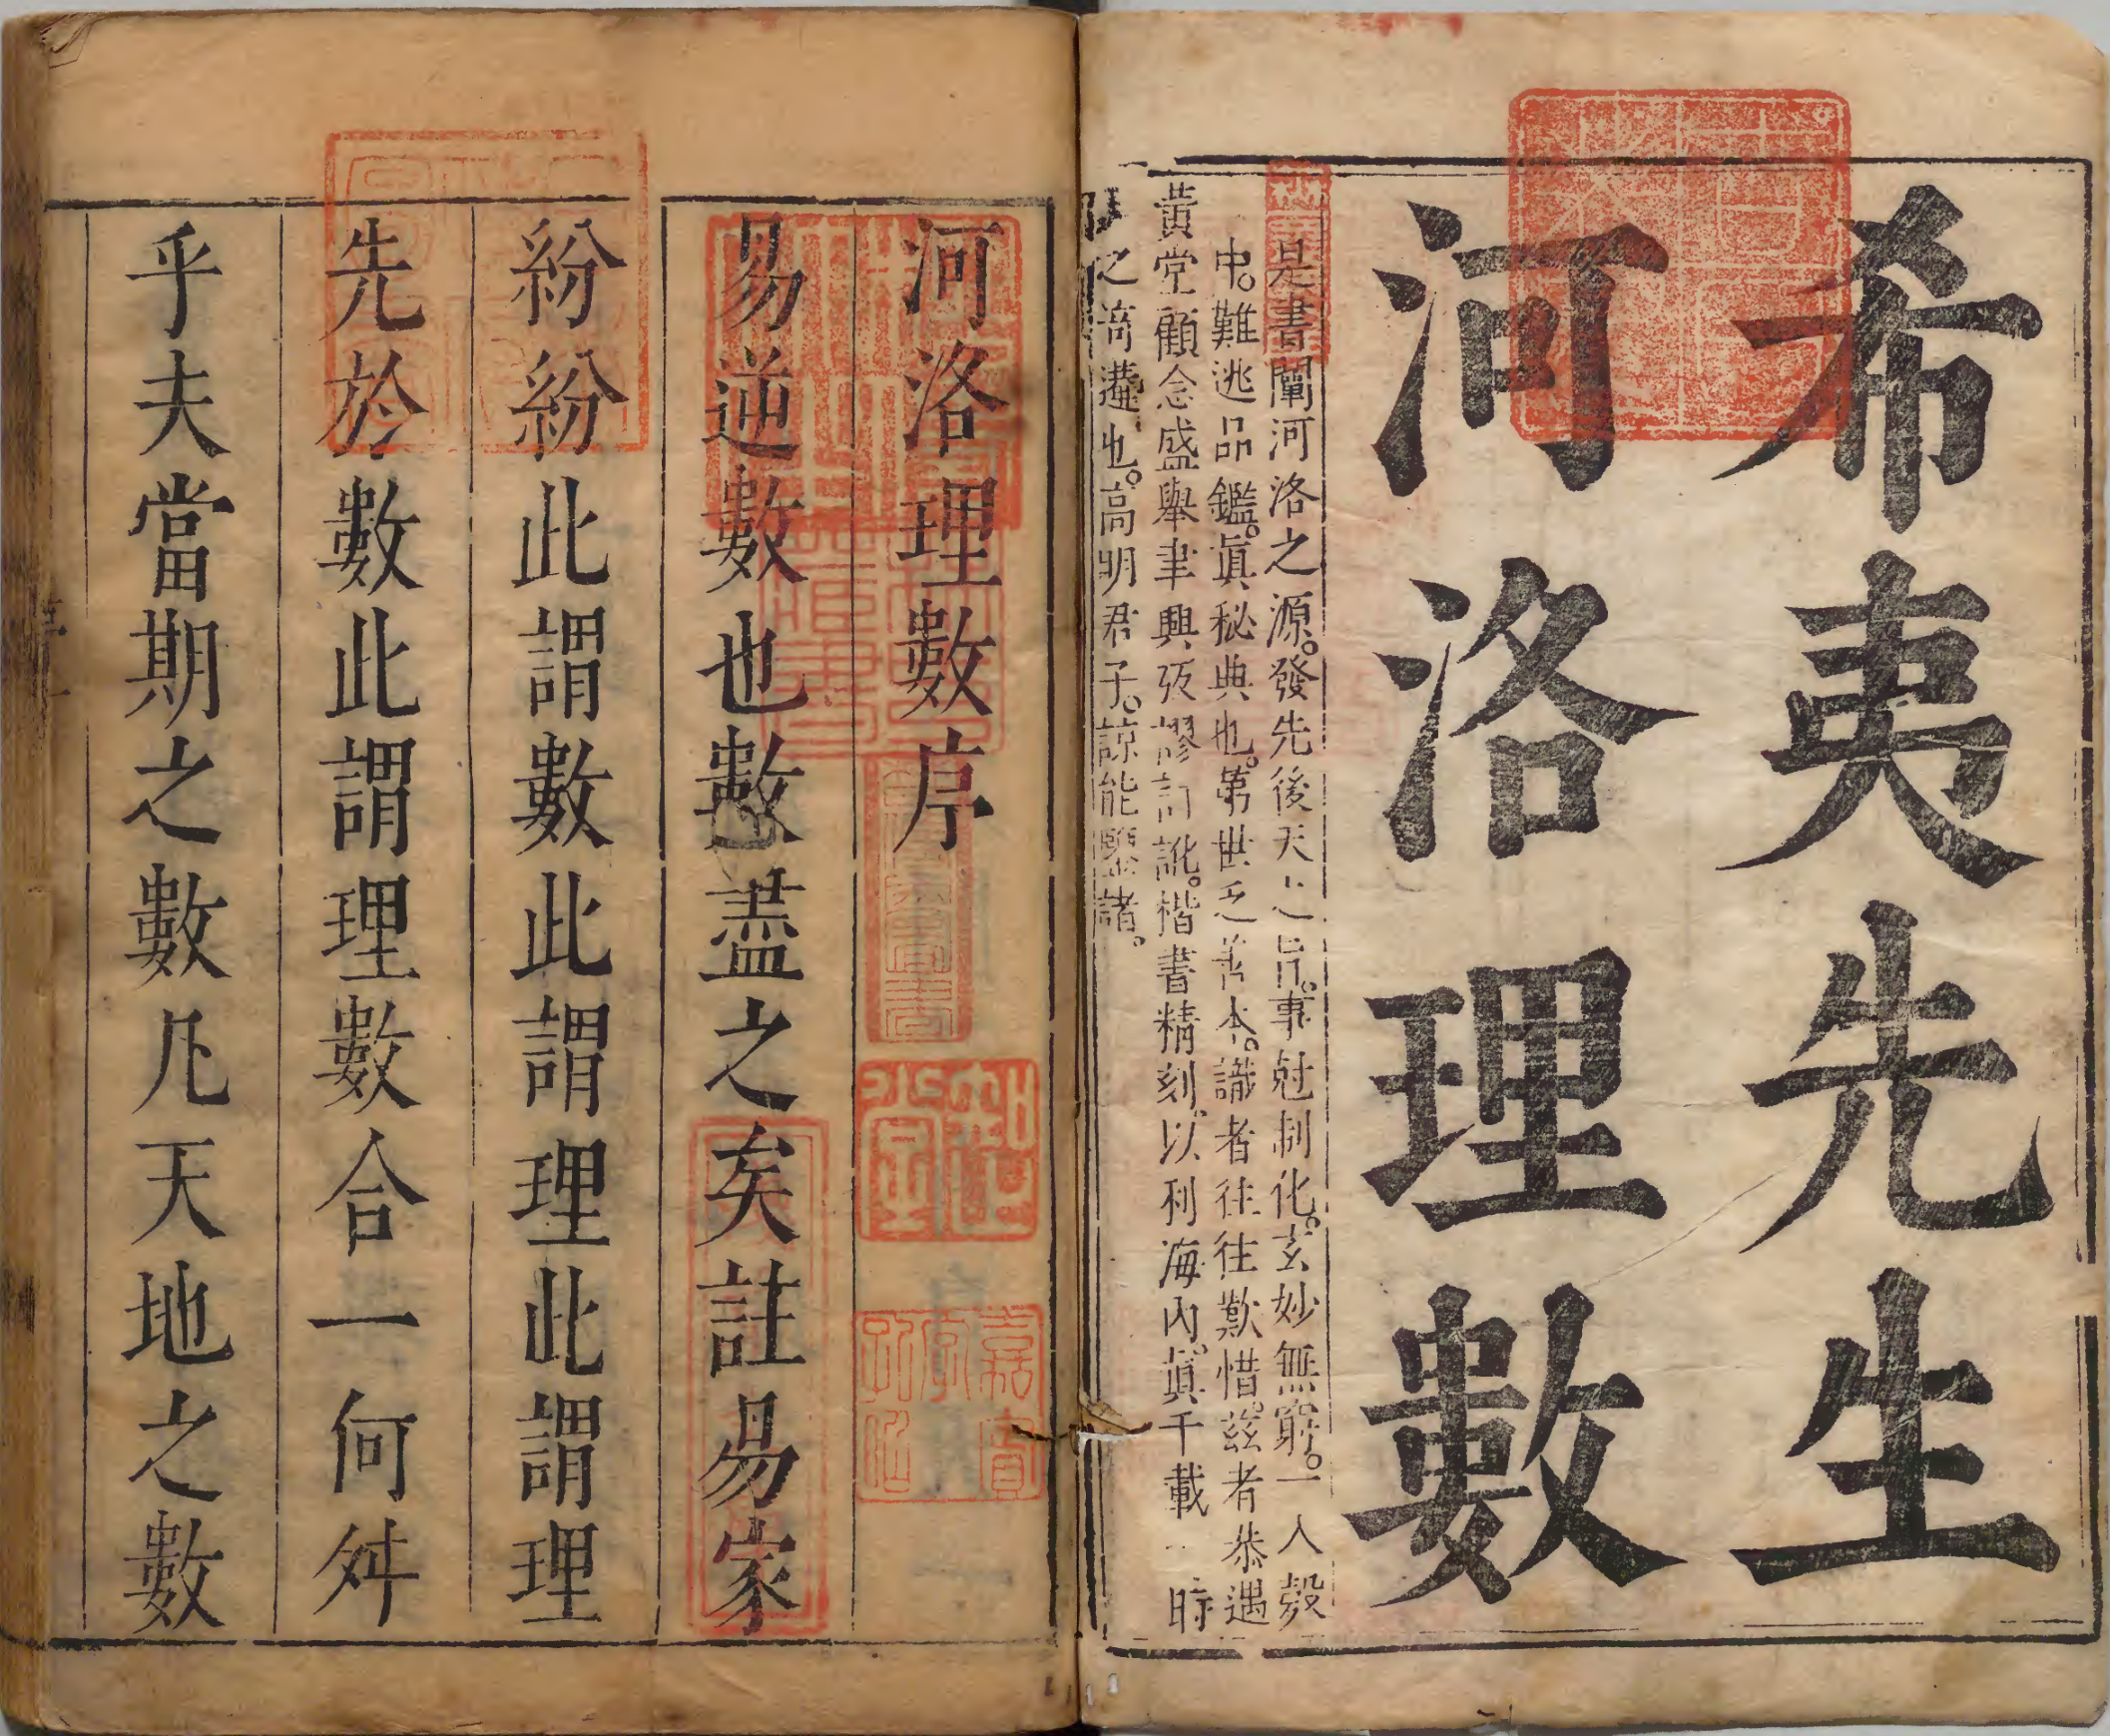 希夷先生
河洛理數
是書闡河洛之源。發先後天之旨。事尅制化。玄妙無窮。一入彀
中。難逃品鑑。眞秘典也。第世乏善本。識者往往歎惜。茲者恭遇
黃堂顧念盛舉聿興攷謬訂訛。楷書精刻、以利海內。眞千載一時
之竒遘也。高明君子。諒能鑒諸。
河洛理數序
易逆數也數盡之矣註易家
紛紛此謂數此謂理此謂理
先於數此謂理數合一何舛
乎夫當期之數凡天地之數